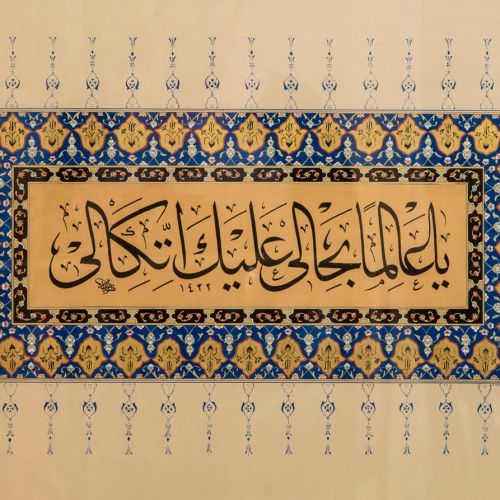 يا عَالِمًا بِحَالِي عَلَيْكَ اتِّكَالِي
١٤٣٢